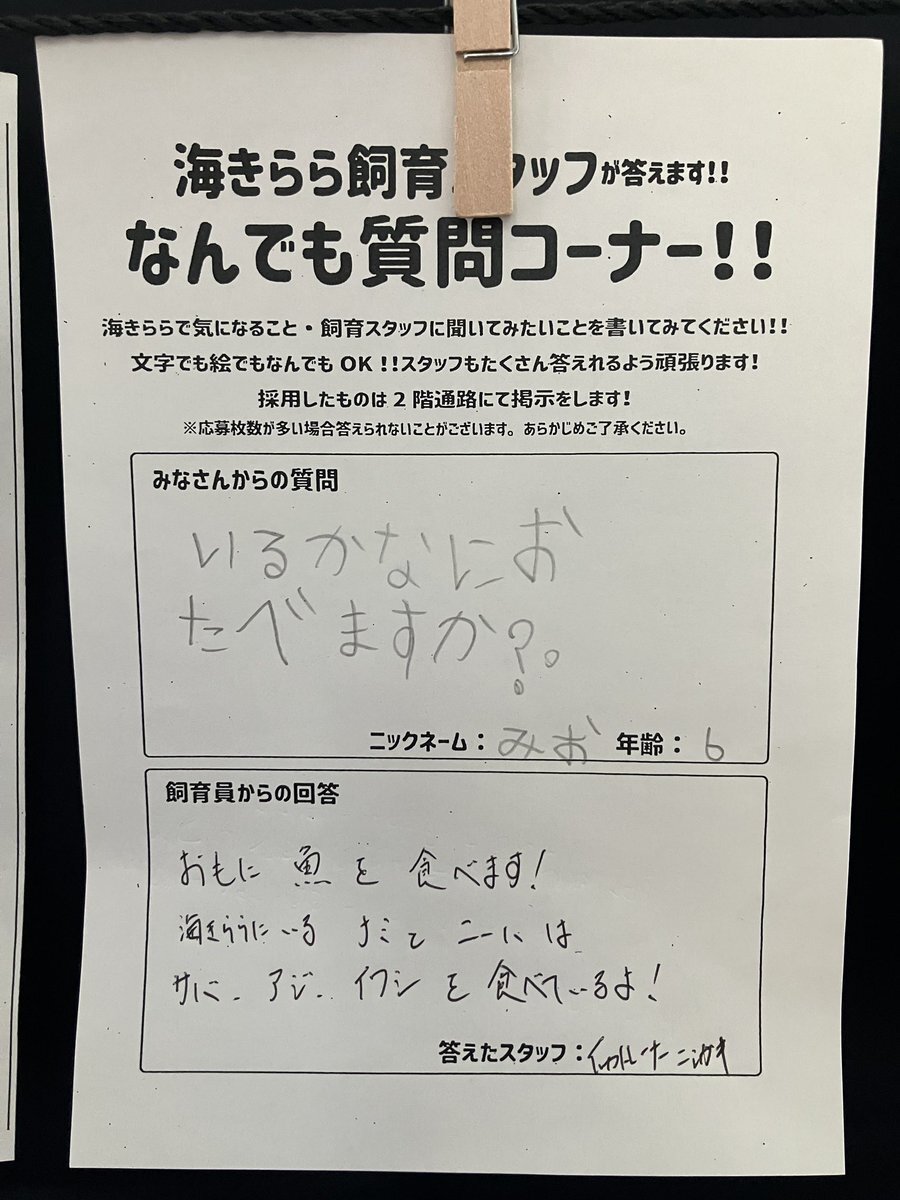 海きらら飼育スタッフが答えます!!
なんでも質問コーナー!!
海きららで気になること・飼育スタッフに聞いてみたいことを書いてみてください!!
文字でも絵でもなんでも OK !!スタッフもたくさん答えれるよう頑張ります!
採用したものは 2 階通路にて掲示をします!
※応募枚数が多い場合答えられないことがございます。あらかじめご了承ください。
みなさんからの質問
いるかなにお
たべますか?。
ニックネーム: みお 年齢: 6
飼育員からの回答
おもに 魚を 食べます!
海きららにいる ナミと ニーハは
サバ、アジ、イワシを食べているよ!
答えたスタッフ:イルカトレーナー